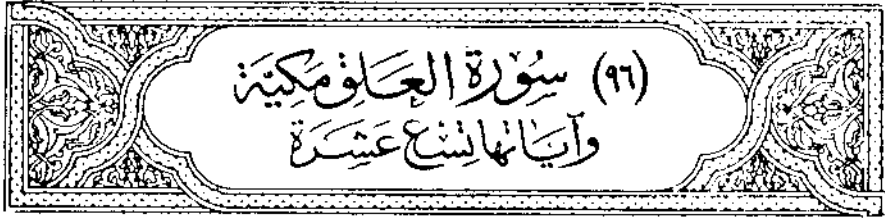 (٩٦) سُورَة العَلَق مَكِيَّة
وآيَاتها تِسْع عَشَرَة